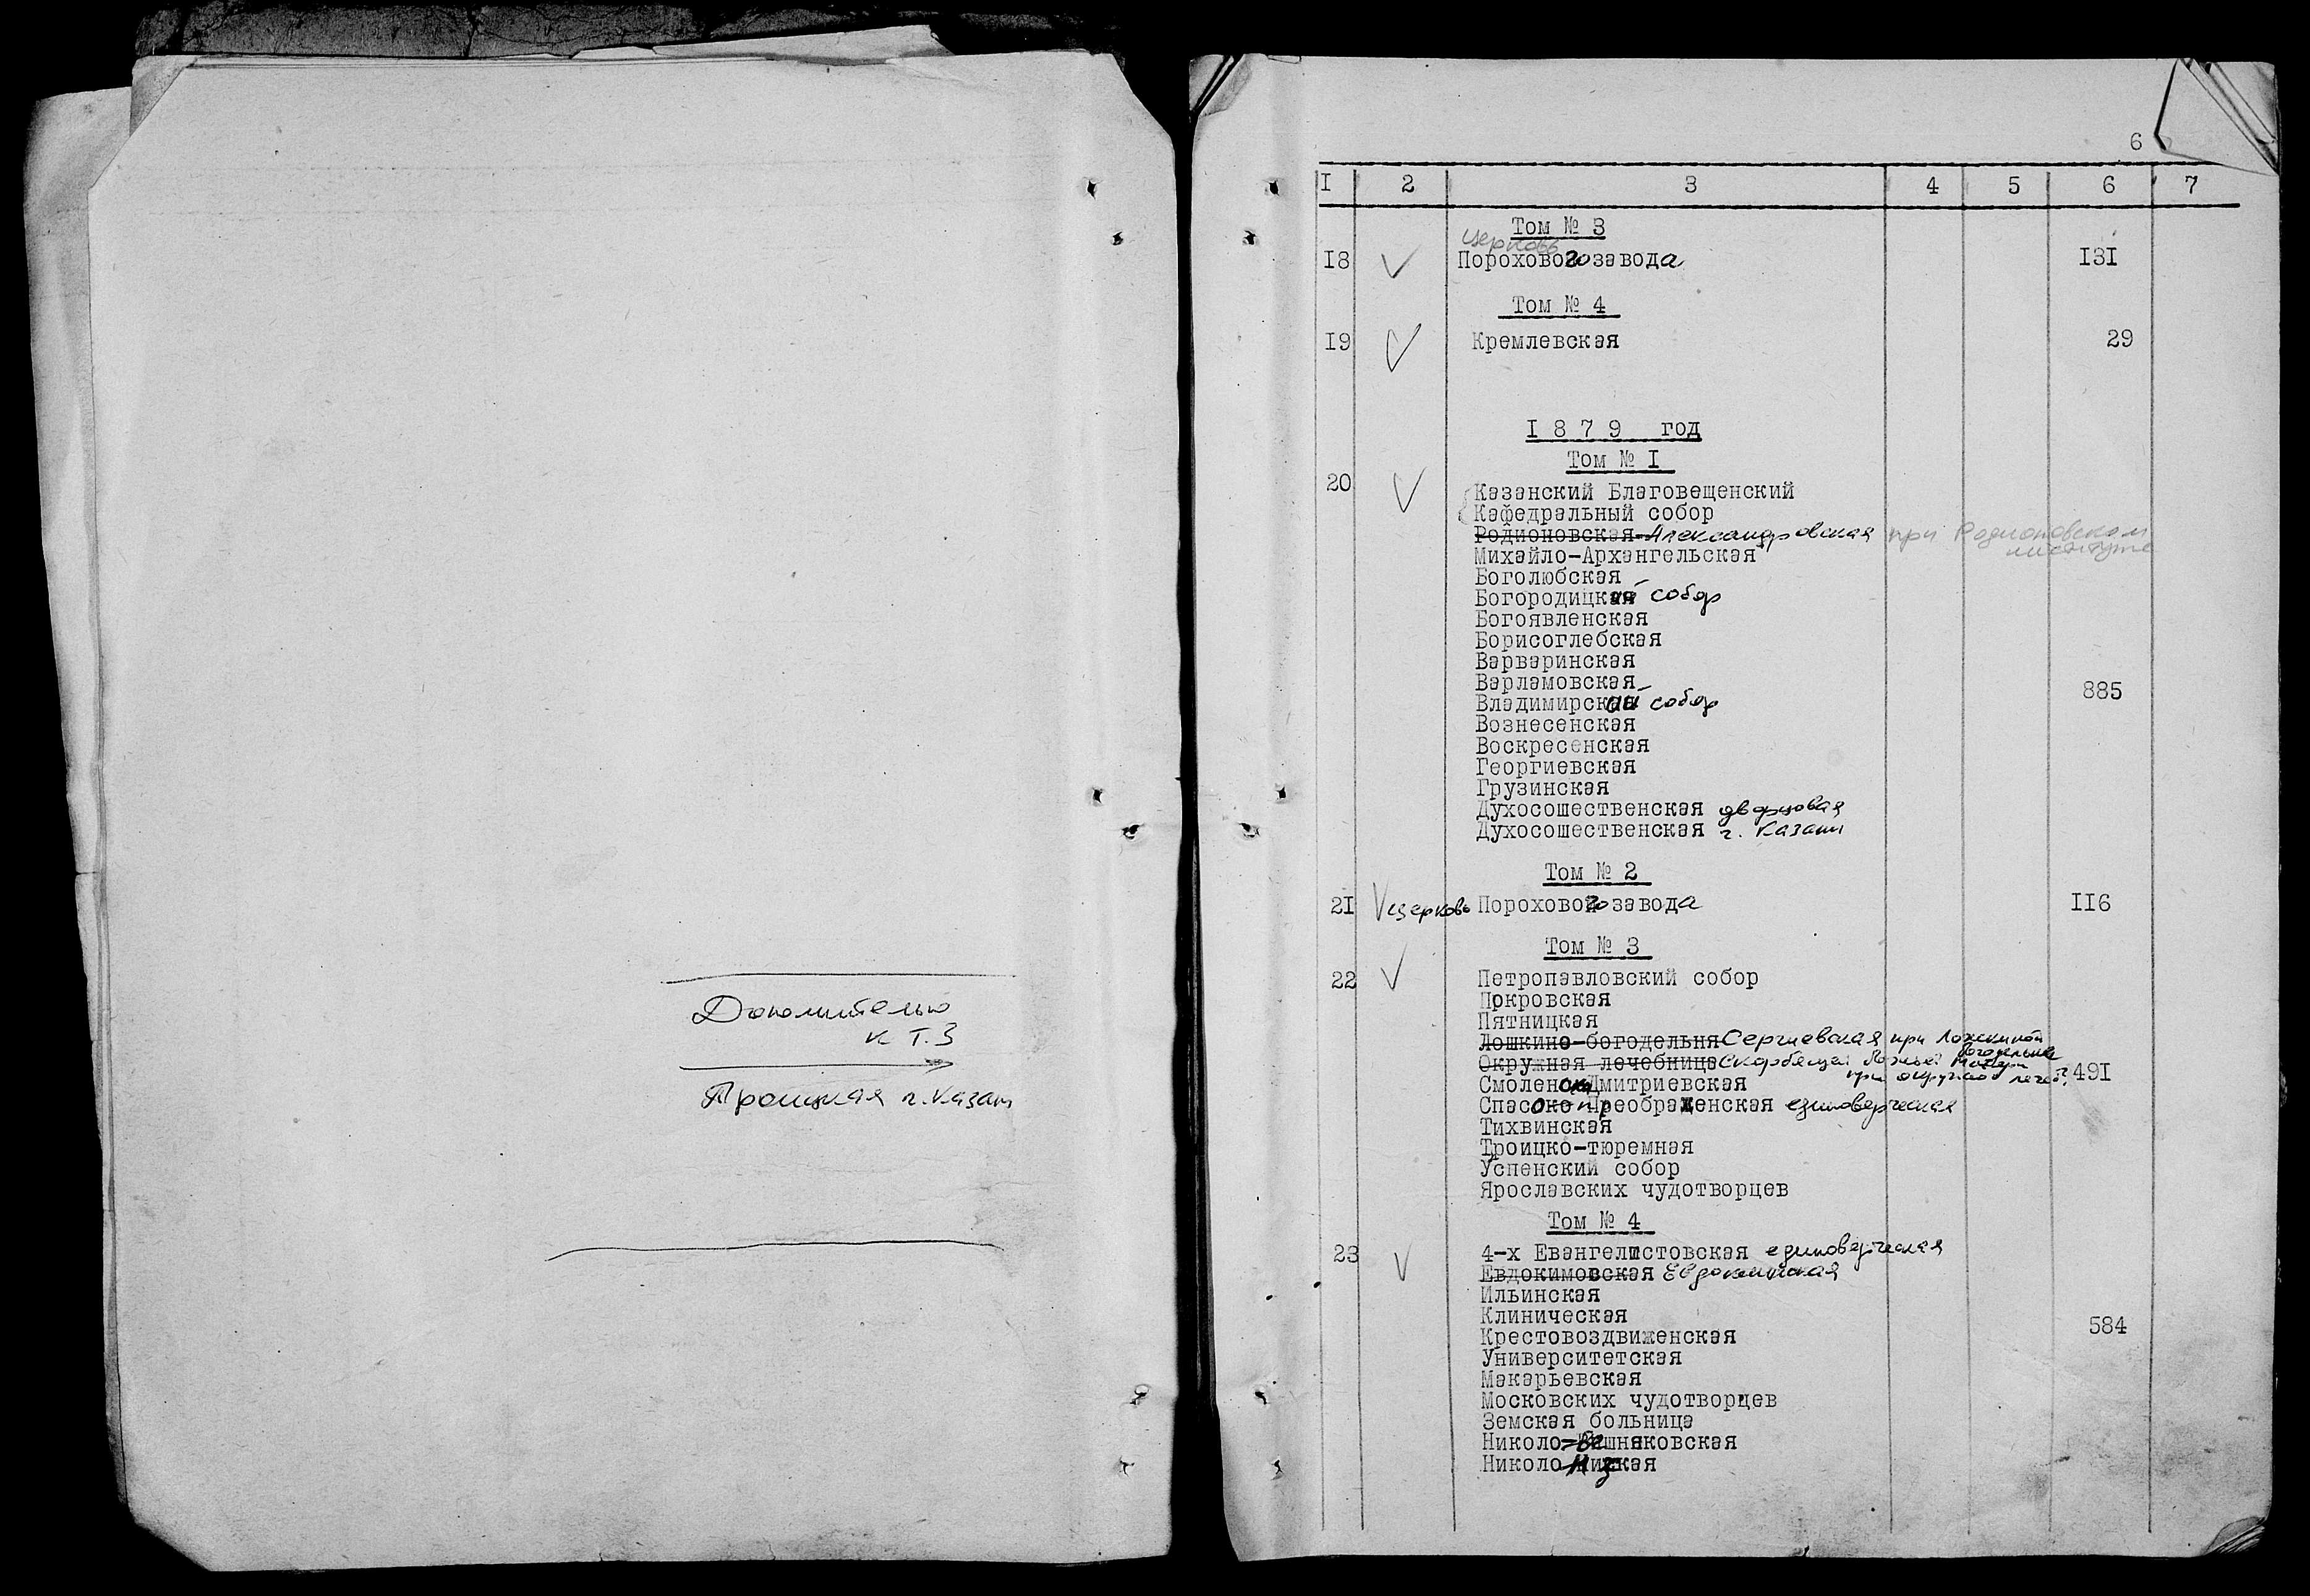 Дополнительно
к т. 3
Троицкая г. Казани
6
I 2 3 4 5 6 7
Том № 3
церковь
I8 Порохового завода I3I
Том № 4
I9 Кремлевская 29
I 8 7 9 год
Том № I
20 Казанский Благовещенский
Кафедральный собор
Родионовская-Александровская при Родионовском
институте
Михайло-Архангельская
Боголюбская
Богородицкий собор
Богоявленская
Борисоглебская
Варваринская
Варламовская
885
Владимирский собор
Вознесенская
Воскресенская
Георгиевская
Грузинская
Духосошественская дворцовая
Духосошественская г. Казани
Том № 2
2I церковь Порохового завода II6
Том № 3
22 Петропавловский собор
Покровская
Пятницкая
Лошкино-богодельня Сергиевская при Ложкиной
богодельне
Окружная лечебница Скорбящей Божьей Матери
при окружной лечеб.
Смоленско Дмитриевская 49I
Спасо-Преображенская единоверческая
Тихвинская
Троицко-тюремная
Успенский собор
Ярославских чудотворцев
Том № 4
23 4-х Евангелистовская единоверческая
Евдокимовская Евдокиинская
Ильинская
Клиническая
584
Крестовоздвиженская
Университетская
Макарьевская
Московских чудотворцев
Земская больница
Николо-Вешняковская
Николо Низская